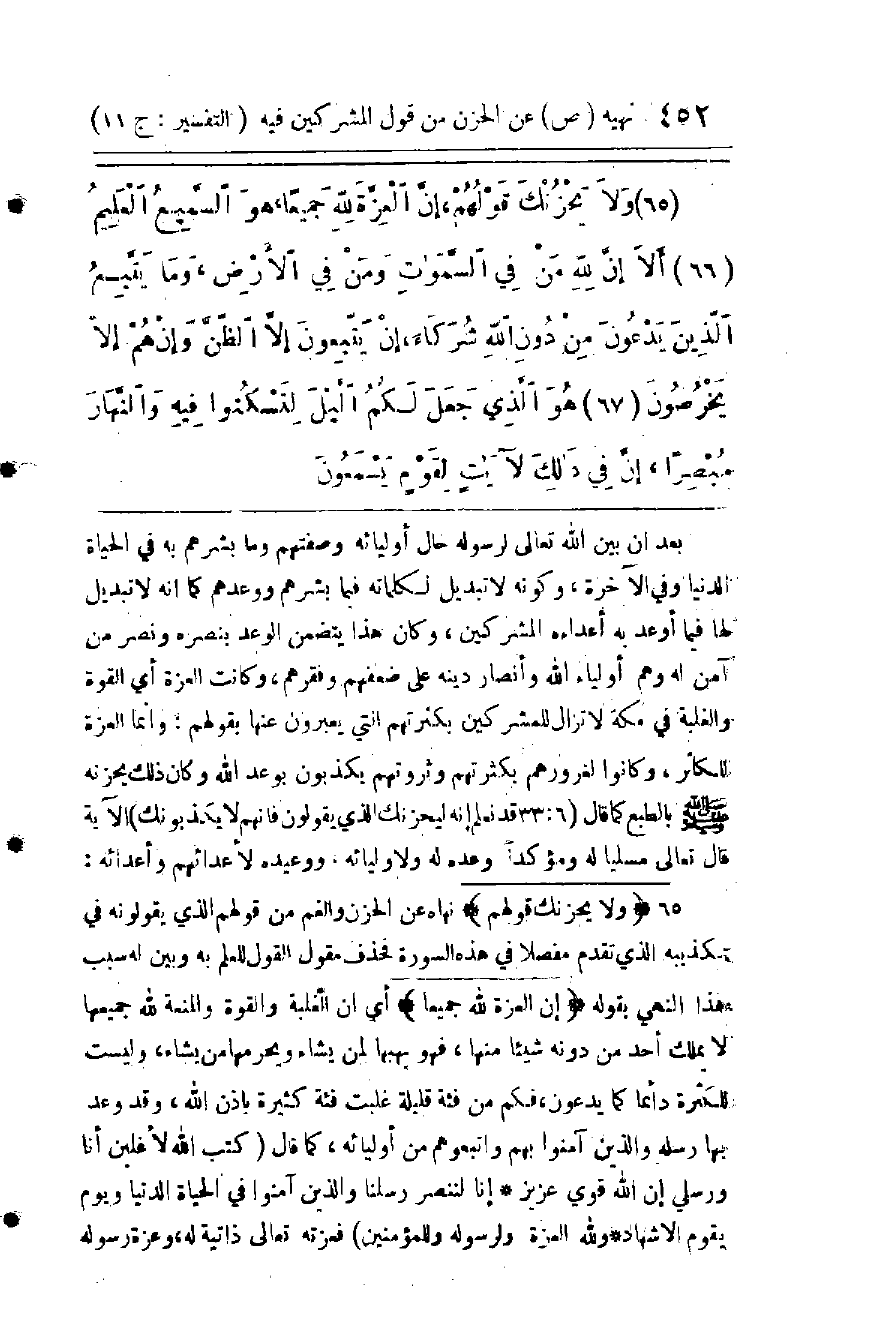 ٤٥٢ نهيه (ص) عن الحزن من قول المشركين فيه (التفسير : ج ١١)
(٦٥) وَلاَ يَحْزُنْكَ قَوْلُهُمْ، إِنَّ ٱلْعِزَّةَ لِلّٰهِ جَمِيعًا، هُوَ ٱلسَّمِيعُ ٱلْعَلِيمُ
(٦٦) أَلاَ إِنَّ لِلّٰهِ مَنْ فِي ٱلسَّمٰوَاتِ وَمَنْ فِي ٱلأَرْضِ، وَمَا يَتَّبِعُ
ٱلَّذِينَ يَدْعُونَ مِنْ دُونِ ٱللهِ شُرَكَاءَ، إِنْ يَتَّبِعُونَ إِلاَّ ٱلظَّنَّ وَإِنْ هُمْ إِلاَّ
يَخْرُصُونَ (٦٧) هُوَ ٱلَّذِي جَعَلَ لَكُمُ ٱلَّيْلَ لِتَسْكُنُوا فِيهِ وَٱلنَّهَارَ
مُبْصِرًا، إِنَّ فِي ذٰلِكَ لَآيٰتٍ لِقَوْمٍ يَسْمَعُونَ
بعد ان بين الله تعالى لرسوله حال أوليائه وصفتهم وما بشرهم به في الحياة
الدنيا وفي الآخرة ، وكونه لا تبديل لكلماته فيما بشرهم ووعدهم كما انه لا تبديل
لها فيما أوعد به أعداءه المشركين ، وكان هذا يتضمن الوعد بنصره ونصر من
آمن له وهم أولياء الله وأنصار دينه على ضعفهم وفقرهم ، وكانت العزة أي القوة
والغلبة في مكة لا تزال للمشركين بكثرتهم التي يعبرون عنها بقولهم : وانما العزة
للكاثر ، وكانوا لغرورهم بكثرتهم وثروتهم يكذبون بوعد الله وكان ذلك يحزنه
ﷺ بالطبع كما قال (٦:٣٣ قد نعلم إنه ليحزنك الذي يقولون فانهم لا يكذبونك) الآية
قال تعالى مسليا له ومؤكداً وعده له ولاوليائه . ووعيده لأعدائهم وأعدائه :
٦٥ ﴿ ولا يحزنك قولهم ﴾ نهاه عن الحزن والغم من قولهم الذي يقولونه في
تكذيبه الذي تقدم مفصلا في هذه السورة فحذف مقول القول للعلم به وبين له سبب
هذا النهي بقوله ﴿ إن العزة لله جميعا ﴾ أي ان الغلبة والقوة والمنعة لله جميعها
لا يملك أحد من دونه شيئا منها ، فهو يهبها لمن يشاء ويحرمها من يشاء ، وليست
للكثرة دائما كما يدعون ، فكم من فئة قليلة غلبت فئة كثيرة باذن الله ، وقد وعد
بها رسله والذين آمنوا بهم واتبعوهم من أوليائه ، كما قال ( كتب الله لأغلبن أنا
ورسلي إن الله قوي عزيز * إنا لننصر رسلنا والذين آمنوا في الحياة الدنيا ويوم
يقوم الاشهاد * ولله العزة ولرسوله وللمؤمنين) فعزته تعالى ذاتية له ، وعزة رسوله